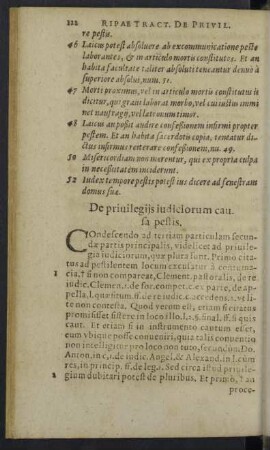 112 RIPAE TRACT. DE PRIVIL.
re pestis.
46 Laicus potest absoluere ab excommunicatione peste
laborantes, & in articulo mortis constitutos. Et an
habita facultate taliter absoluti teneantur denuò à
superiore absolui, num. 51.
47 Morti proximus, vel in articulo mortis constitutus is
dicitur, qui graui laborat morbo, vel cui ictus immi
net naufragij, vel latronum timor.
48 Laicus an possit audire confessionem infirmi propter
pestem. Et an habita sacerdotis copia, teneatur di-
ctus infirmus reiterare confessionem, nu. 49.
50 Misericordiam non merentur, qui ex propria culpa
in necessitatem inciderunt.
52 Iudex tempore pestis potest ius dicere ad fenestram
domus suæ.
De priuilegijs iudiciorum cau
sa pestis.
COndescendo ad tertiam particulam secun-
dæ partis principalis, videlicet ad priuile-
gia iudiciorum, quæ plura sunt. Primo cita
tus ad pestilentem locum excusatur à contuma-
1 cia, † si non compareat, Clement. pastoralis, de re
iudic. Clemen. 1. de for. compet. c. ex parte, de ap-
pella, l. quæsitum. ff. de re iudic. c. accedens. 2. vt li-
te non contesta. Quod verum est, etiam si citatus
promisisset sistere in loco illo. l. 2. §. final. ff. si quis
caut. Et etiam si in instrumento cautum esset,
eum vbique posse conueniri, quia talis conuentio
non intelligitur pro loco non tuto, secundum Do.
Anton. in c. 1. de iudic. Angel. & Alexand. in l. cùm
res, in princip. ff. de leg. 1. Sed circa istud priuile-
2 gium dubitari potest de pluribus. Et primò, † an
proce-